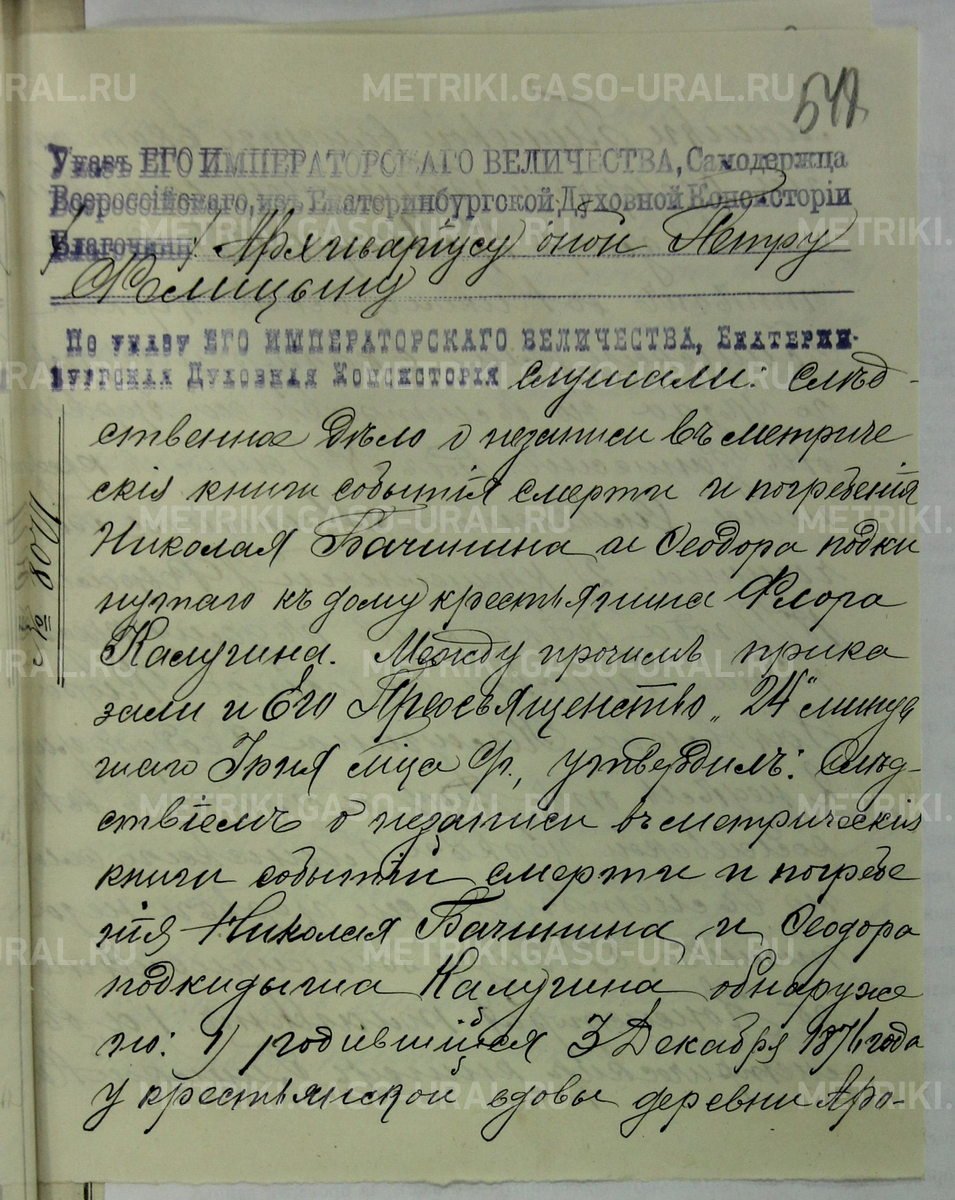 METRIKI.GASO-URAL.RU
542
Указъ ЕГО ИМПЕРАТОРСКАГО ВЕЛИЧЕСТВА, Самодержца
Всероссійскаго, изъ Екатеринбургской Духовной Консисторіи
Благочинн Архиваріусу оной Петру
По указу ЕГО ИМПЕРАТОРСКАГО ВЕЛИЧЕСТВА, Екатерин-
бургская Духовная Консисторія слушали: слѣд-
ственное дѣло о незаписи въ метриче
скія книги событія смерти и погребенія
Николая Бачинина и Ѳеодора подки
нутаго къ дому крестьянина Флора
Калугина. Между прочимъ прика
зали и Его Преосвященство „24“ минув
шаго Іюня мѣца с/г., утвердилъ: Слѣд-
ствіемъ о незаписи въ метрическія
книги событій смерти и погребе
нія Николая Бачинина и Ѳеодора
подкидыша Калугина обнаруже
но: 1) родившійся 3 Декабря года
у крестьянской вдовы деревни Аро-